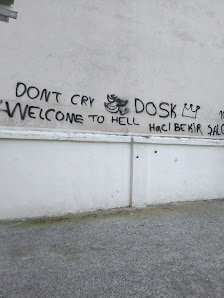 DONT CRY DOSK
WELCOME TO HELL HACI BEKİR